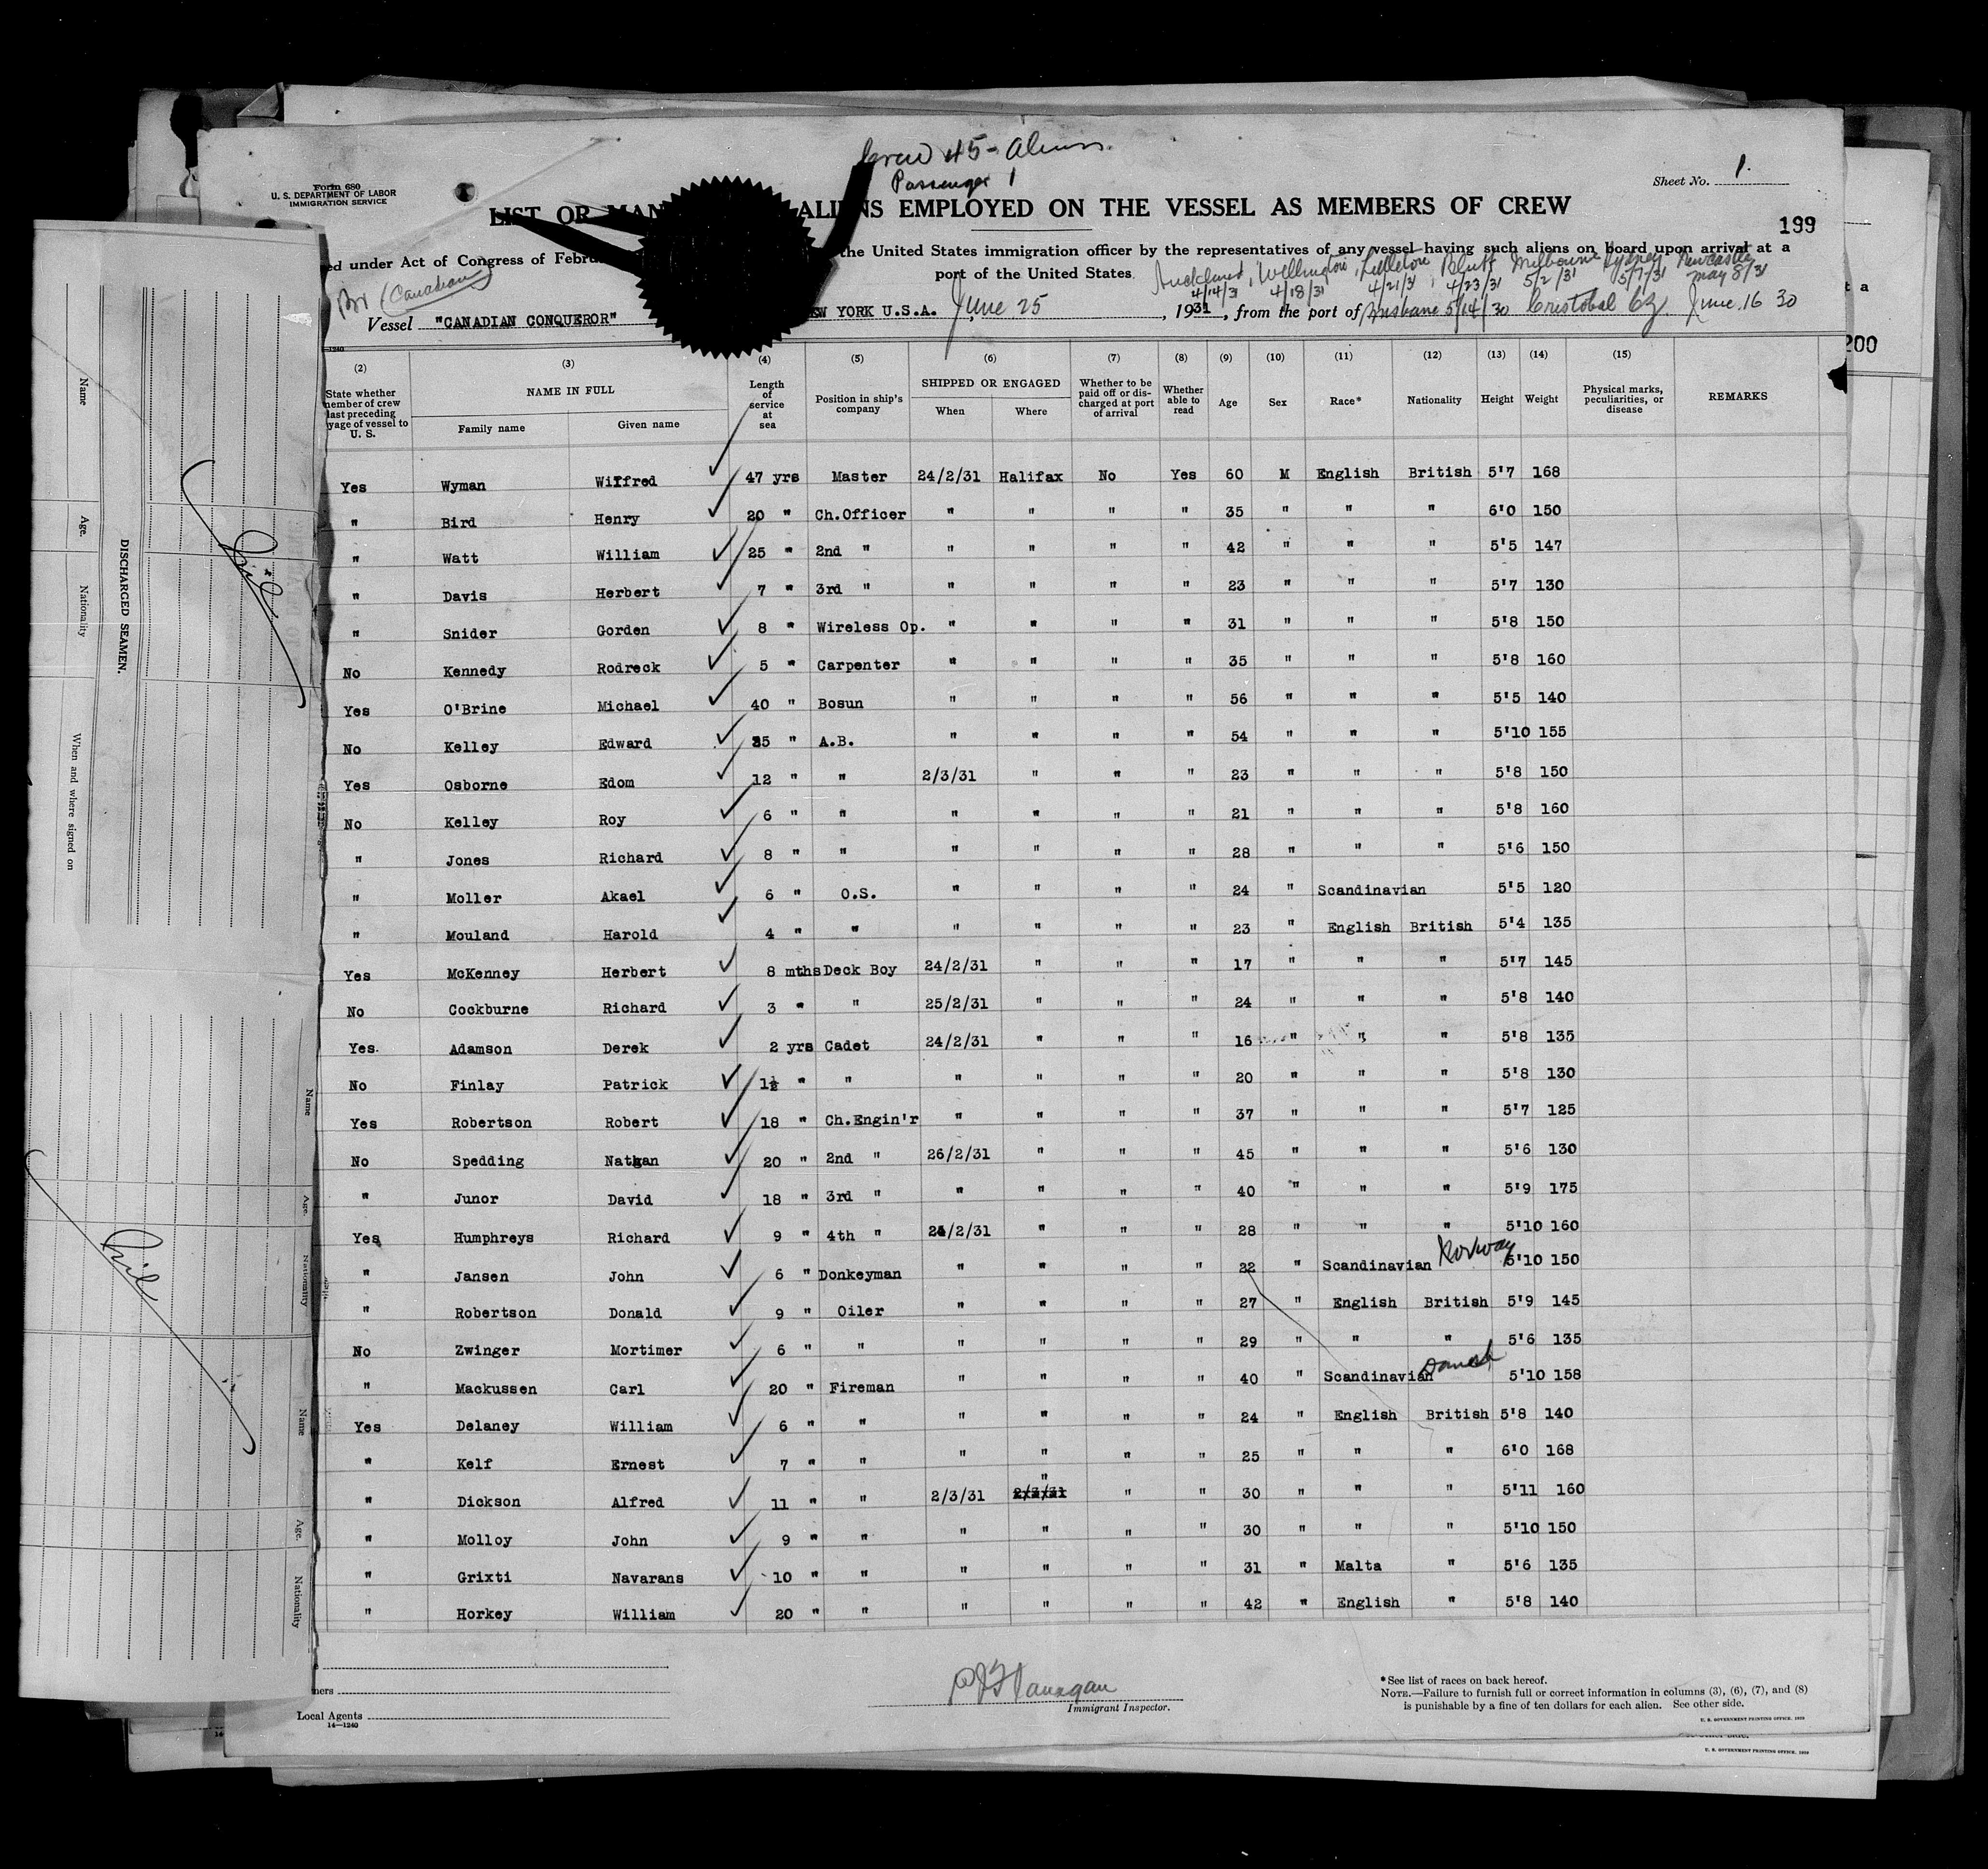 Crew 45 - Aliens
Passenger 1
Form 680
U. S. DEPARTMENT OF LABOR
IMMIGRATION SERVICE
Sheet No. 1.
LIST OR MAN ALIENS EMPLOYED ON THE VESSEL AS MEMBERS OF CREW
199
ed under Act of Congress of Febru the United States immigration officer by the representatives of any vessel having such aliens on board upon arrival at a
port of the United States
Br (Canadian)
Auckland, Wellington, Lyttleton, Bluff Melbourne Sydney Newcastle
4/14/31 4/18/31 4/21/31 4/23/31 5/2/31 5/7/31 May 8/31
Vessel "CANADIAN CONQUEROR" EW YORK U.S.A. June 25, 1931, from the port of Brisbane 5/14/30 Cristobal CZ June 16 30
t a
200
(2) (3) (4) (5) (6) (7) (8) (9) (10) (11) (12) (13) (14) (15)
State whether member of crew last preceding yage of vessel to U. S.
NAME IN FULL
Family name Given name
Length of service at sea
Position in ship's company
SHIPPED OR ENGAGED
When Where
Whether to be paid off or discharged at port of arrival
Whether able to read
Age Sex Race* Nationality Height Weight
Physical marks, peculiarities, or disease
REMARKS
Yes Wyman Wilfred 47 yrs Master 24/2/31 Halifax No Yes 60 M English British 5'7 168
" Bird Henry 20 " Ch.Officer " " " " 35 " " " 6'0 150
" Watt William 25 " 2nd " " " " " 42 " " " 5'5 147
" Davis Herbert 7 " 3rd " " " " " 23 " " " 5'7 130
" Snider Gorden 8 " Wireless Op. " " " " 31 " " " 5'8 150
No Kennedy Rodreck 5 " Carpenter " " " " 35 " " " 5'8 160
Yes O'Brine Michael 40 " Bosun " " " " 56 " " " 5'5 140
No Kelley Edward 35 " A.B. " " " " 54 " " " 5'10 155
Yes Osborne Edom 12 " " 2/3/31 " " " 23 " " " 5'8 150
No Kelley Roy 6 " " " " " " 21 " " " 5'8 160
" Jones Richard 8 " " " " " " 28 " " " 5'6 150
" Moller Akael 6 " O.S. " " " " 24 " Scandinavian 5'5 120
" Mouland Harold 4 " " " " " " 23 " English British 5'4 135
Yes McKenney Herbert 8 mths Deck Boy 24/2/31 " " " 17 " " " 5'7 145
No Cockburne Richard 3 " " 25/2/31 " " " 24 " " " 5'8 140
Yes. Adamson Derek 2 yrs Cadet 24/2/31 " " " 16 " " " 5'8 135
No Finlay Patrick 1½ " " " " " " 20 " " " 5'8 130
Yes Robertson Robert 18 " Ch.Engin'r " " " " 37 " " " 5'7 125
No Spedding Nathan 20 " 2nd " 26/2/31 " " " 45 " " " 5'6 130
" Junor David 18 " 3rd " " " " " 40 " " " 5'9 175
Yes Humphreys Richard 9 " 4th " 24/2/31 " " " 28 " " " 5'10 160
" Jansen John 6 " Donkeyman " " " " 22 " Scandinavian Norway 5'10 150
" Robertson Donald 9 " Oiler " " " " 27 " English British 5'9 145
No Zwinger Mortimer 6 " " " " " " 29 " " " 5'6 135
" Mackussen Carl 20 " Fireman " " " " 40 " Scandinavian Danish 5'10 158
Yes Delaney William 6 " " " " " " 24 " English British 5'8 140
" Kelf Ernest 7 " " " " " " 25 " " " 6'0 168
" Dickson Alfred 11 " " 2/3/31 2/3/31 " " " 30 " " " 5'11 160
" Molloy John 9 " " " " " " 30 " " " 5'10 150
" Grixti Navarans 10 " " " " " " 31 " Malta " 5'6 135
" Horkey William 20 " " " " " " 42 " English " 5'8 140
ners
Local Agents
14—1240
Immigrant Inspector.
*See list of races on back hereof.
NOTE.—Failure to furnish full or correct information in columns (3), (6), (7), and (8)
is punishable by a fine of ten dollars for each alien. See other side.
U. S. GOVERNMENT PRINTING OFFICE
U. S. GOVERNMENT PRINTING OFFICE
DISCHARGED SEAMEN.
Name Age. Nationality When and where signed on
Name Age. Nationality
Name Age. Nationality